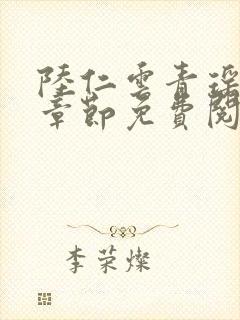 陸仁雲青瑤
章節免費閱
李荣燦